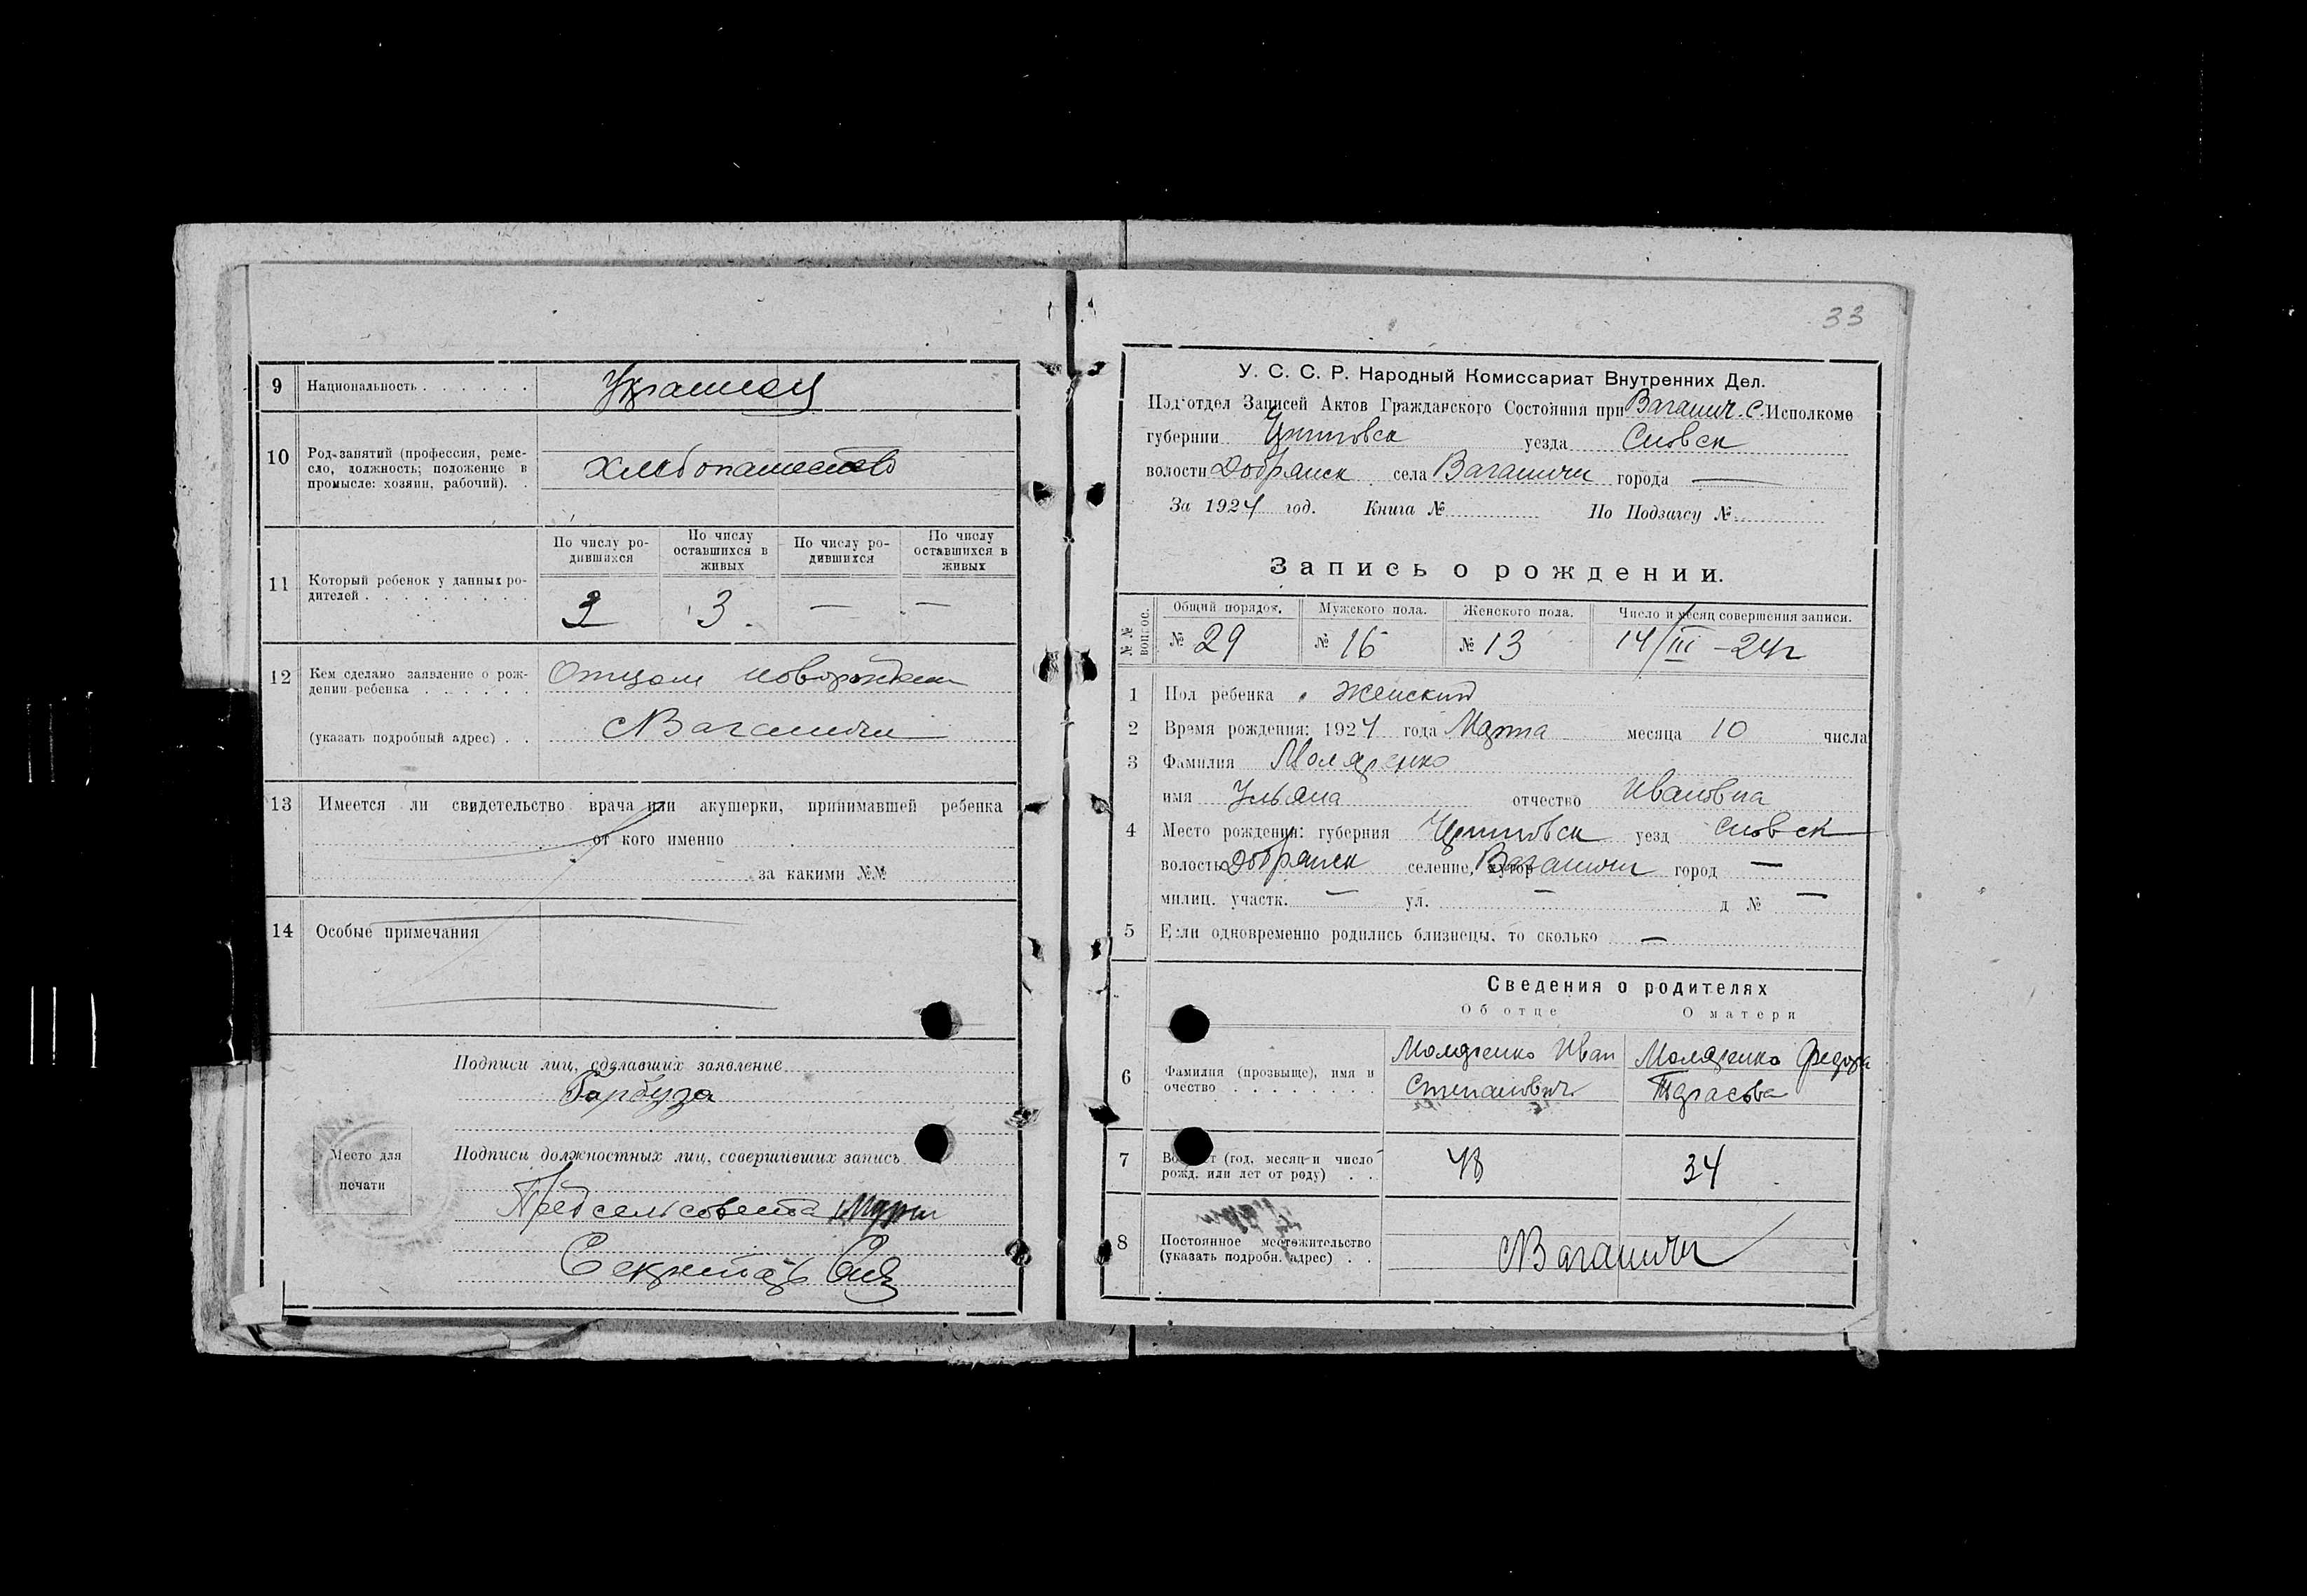 9 Национальность . . . . . . Украинец
10 Род занятий (профессия, ремес-
сло, должность; положение в
промысле: хозяин, рабочий). .
хлебопашество
По числу ро-
дившихся
По числу
оставшихся в
живых
По числу ро-
дившихся
По числу
оставшихся в
живых
11 Который ребенок у данных ро-
дителей . . . . . . . . .
3 3. — —
12 Кем сделано заявление о рож-
дении ребенка . . . . . .
Отцом новорожден
(указать подробный адрес) . .
с Ваганичи
13 Имеется ли свидетельство врача или акушерки, принимавшей ребенка
от кого именно
за какими №№
14 Особые примечания
Подписи лиц, сделавших заявление
Гарбуза
Место для
печати
Подписи должностных лиц, совершивших запись
Предсельсовета
Секретарь
33
У. С. С. Р. Народный Комиссариат Внутренних Дел.
Подотдел Записей Актов Гражданского Состояния при Ваганич. С. Исполкоме
губернии уезда Сновск
волости Добрянск села Ваганичи города —
За 1924 год. Книга № По Подзагсу №
Запись о рождении.
№№ вопрос.
Общий порядок. Мужского пола. Женского пола. Число и месяц совершения записи.
№ 29 № 16 № 13 14/III-24г
1 Пол ребенка женский
2 Время рождения: 1924 года Марта месяца 10 числа
3 Фамилия Моляренко
имя Ульяна отчество Ивановна
4 Место рождения: губерния уезд Сновск
волость Добрянск селение, хутор Ваганичи город —
милиц. участк. — ул. — д № —
5 Если одновременно родились близнецы, то сколько —
Сведения о родителях
Об отце О матери
6 Фамилия (прозвыще), имя и
очество . . . . . . . .
Моляренко Иван
Степанович
Моляренко Федора
Тарасова
7 Возраст (год, месяц и число
рожд. или лет от роду) . .
48 34
8 Постоянное местожительство
(указать подробн. адрес) . .
с Ваганичи